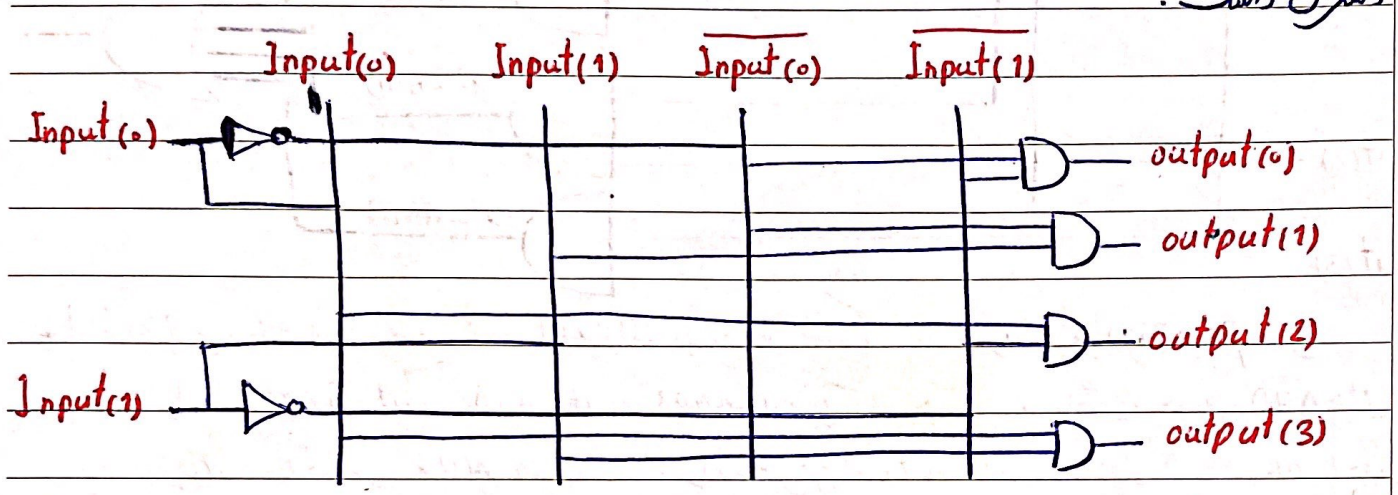 Input(0) Input(1) I̅n̅p̅u̅t̅(̅0̅)̅ I̅n̅p̅u̅t̅(̅1̅)̅
Input(0)
output(0)
output(1)
output(2)
Input(1)
output(3)